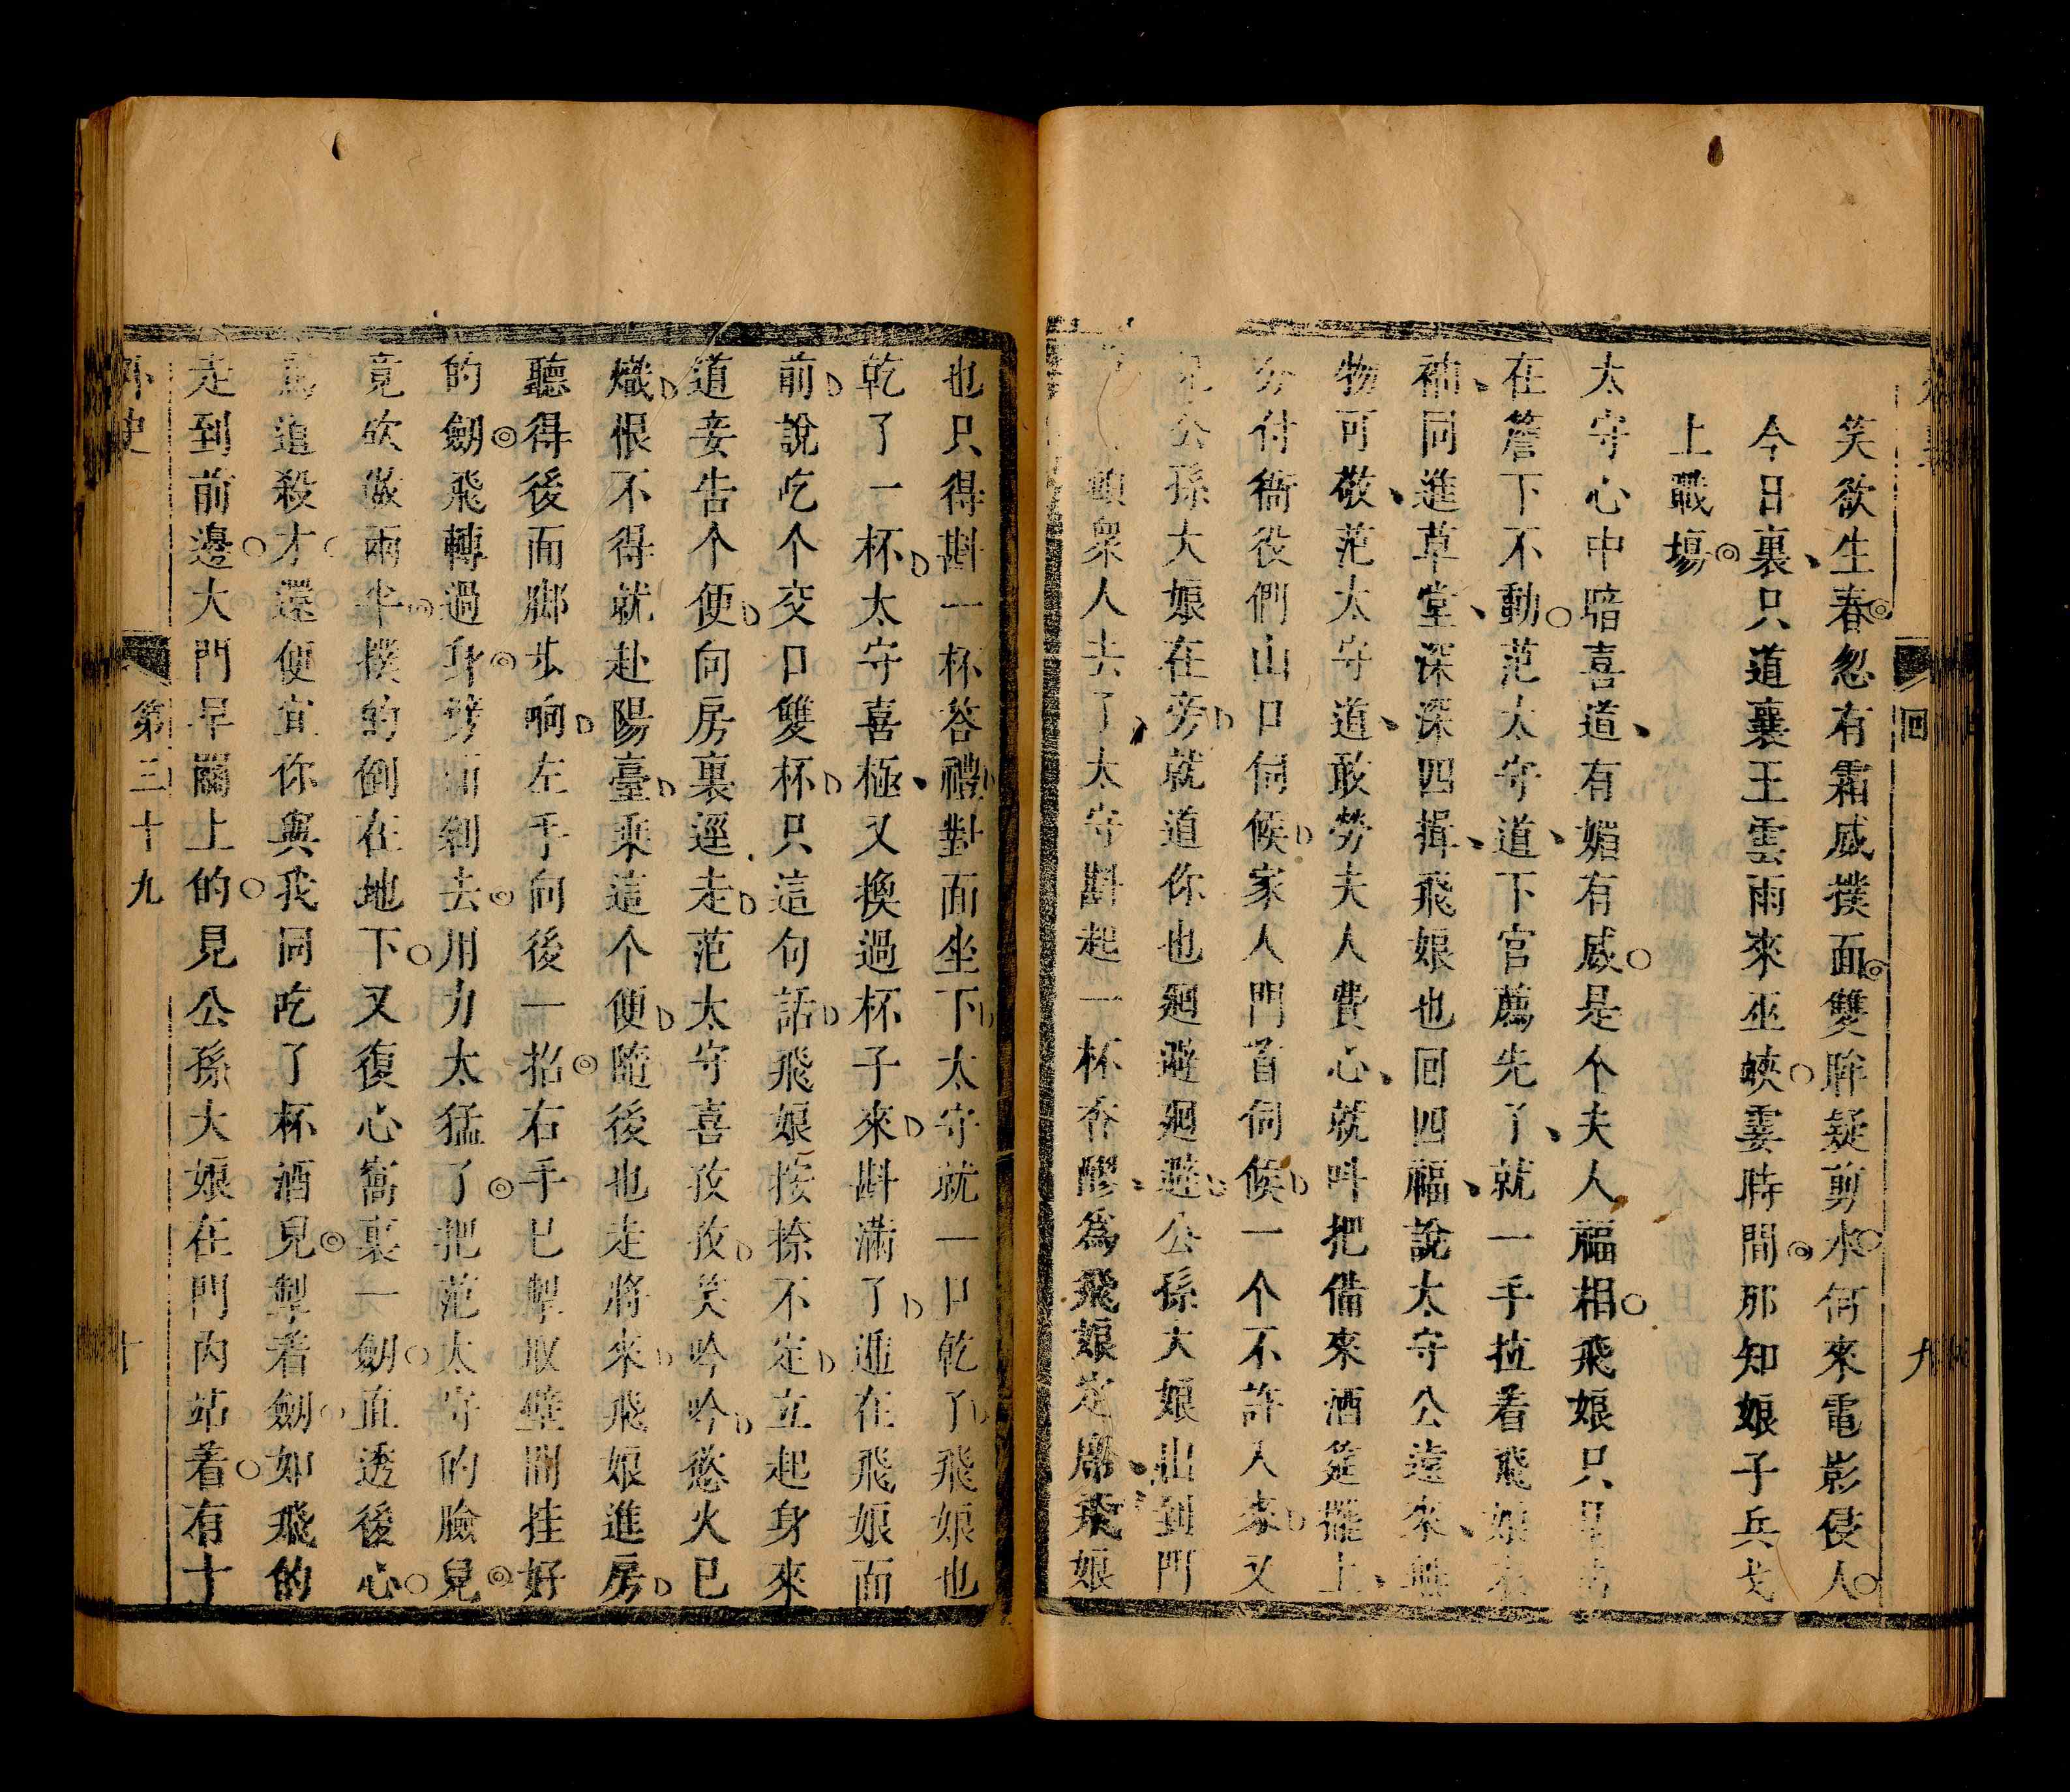 笑欲生春忽有霜威撲面雙眸疑剪水何來電影侵人
今日裏只道襄王雲雨來巫峽霎時間那知娘子兵戈
上戰塲
太守心中暗喜道有媚有威是个夫人福相飛娘只
在簷下不動范太守道下官薦先了就一手拉着飛娘
袖同進草堂深深四揖飛娘也回四福說太守公遠來無
物可敬范太守道敢勞夫人費心就呌把備來酒筵擺上
分付衙役們山口伺候家人門首伺候一个不許入來又
公孫大娘在旁就道你也廻避廻避公孫大娘出到門
衆人去了太守斟起一杯香醪爲飛娘定席飛娘
也只得斟一杯答禮對面坐下太守就一口乾了飛娘也
乾了一杯太守喜極又換過杯子來斟滿了遞在飛娘面
前說吃个交口雙杯只這句話飛娘按捺不定立起身來
道妾告个便向房裏逕走范太守喜孜孜笑吟吟慾火已
熾恨不得就赴陽臺乘這个便隨後也走將來飛娘進房
聽得後面脚步响左手向後一招右手已掣取壁間挂好
的劒飛轉過身劈面剁去用力太猛了把范太守的臉兒
竟砍做兩半撲的倒在地下又復心窩裏一劒直透後心
罵道殺才還便宜你與我同吃了杯酒兒掣着劒如飛的
走到前邊大門早關上的見公孫大娘在門内站着有十
外史
第三十九
十
回
九